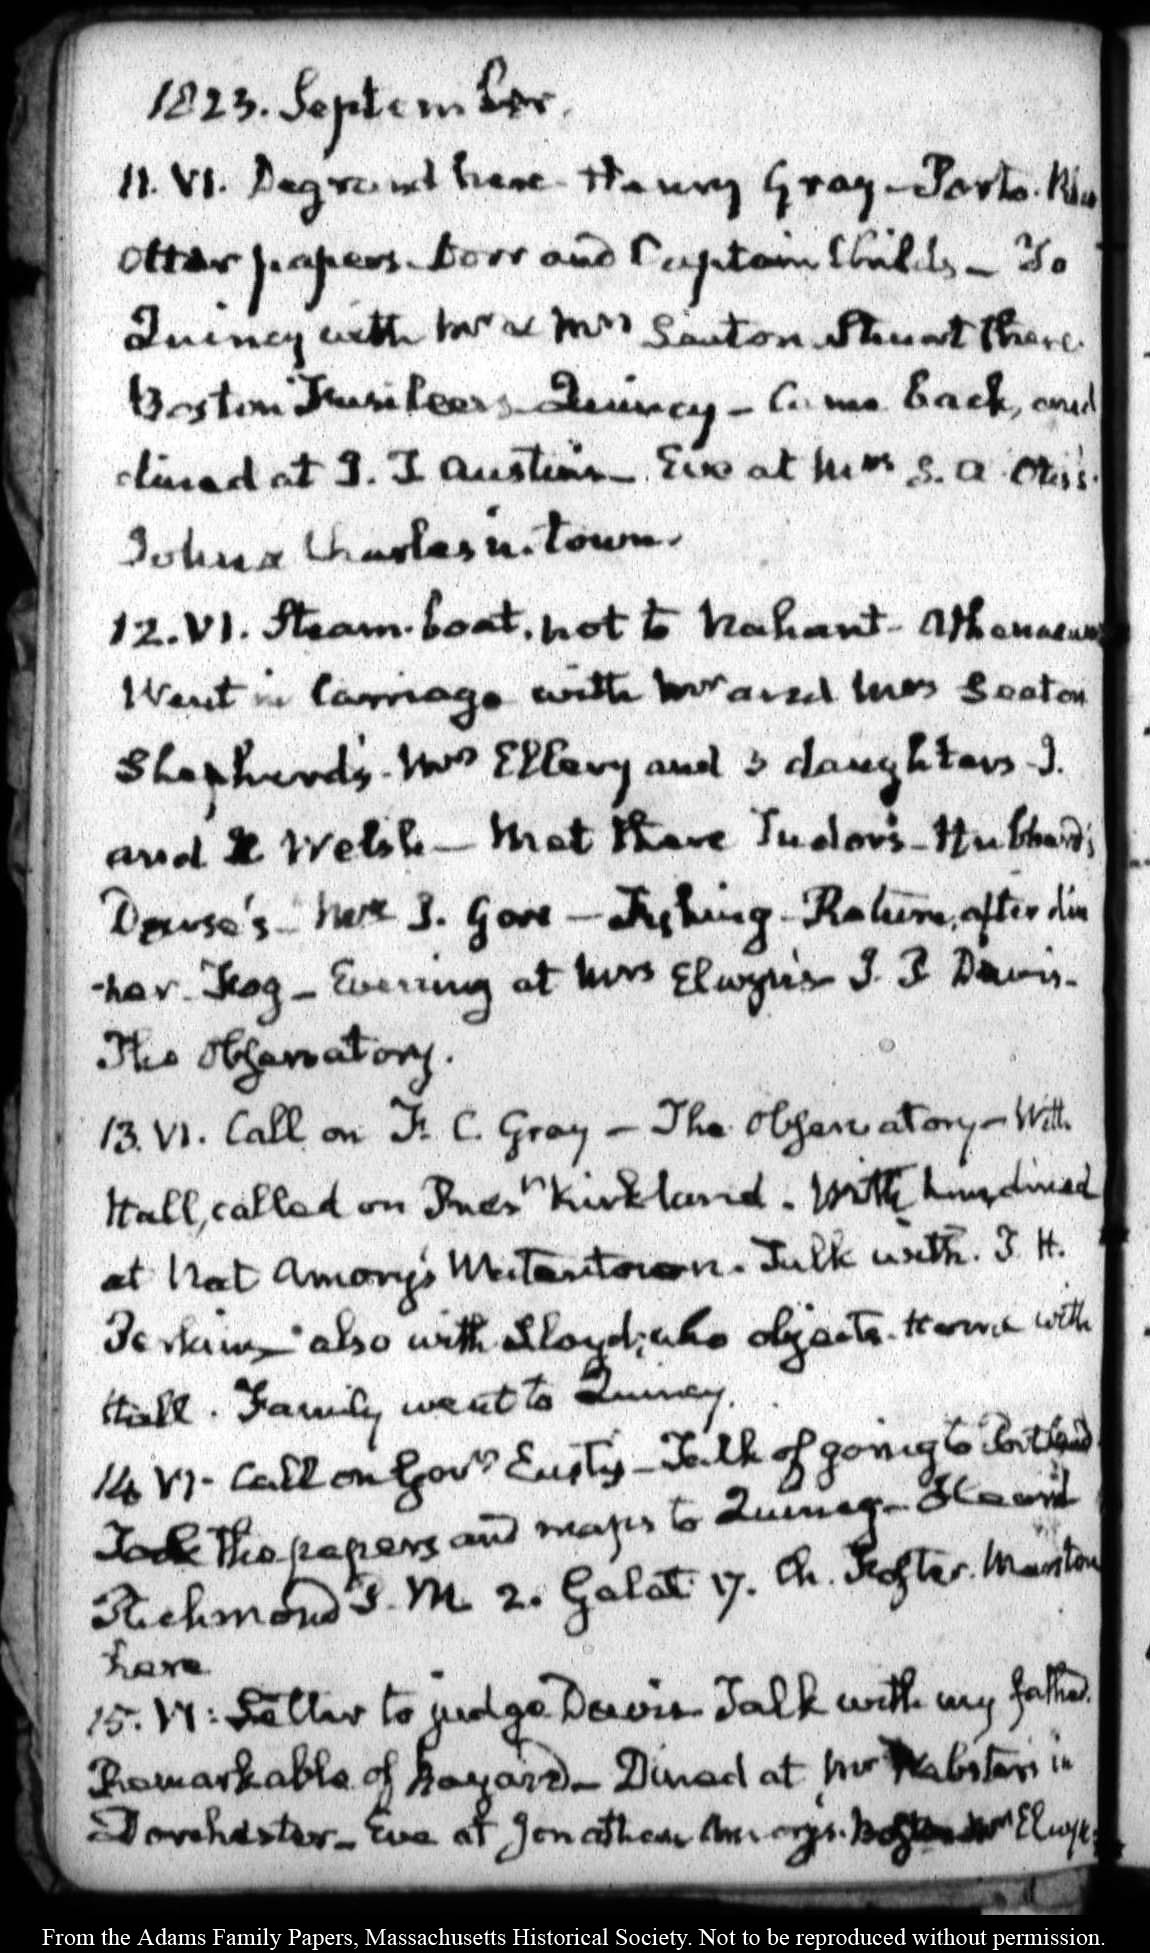 1823. September.
11. VI. Degrand here. Henry Gray – Porto. Rico
Otter papers. Dorr and Captain Childs – To
Quincy with Mr & Mrs Seaton Stuart there.
Boston Fusileers – Quincy – Came back, and
dined at J. T Austin's – Eve at Mrs S. A. Otis's.
John & Charles in town.
12. VI. Steam-boat, not to Nahant – Athenaeum
Went in Carriage with Mr and Mrs Seaton
Shepherd's. Mrs Ellery and 3 daughters J.
and Welsh – Met there Tudor's – Hubbard's
Dowse's – J. Gore – Fishing – Return, after din
-ner. Fog – Evening at Mrs Elwyn's J. P Davis –
The Observatory.
13. VI. Call on F. C. Gray – The Observatory – With
Hall, called on Presn Kirkland. With him, dined
at Nat Amory's Watertown. Talk with. T. H.
Perkins – also with Lloyd; who objects. Home with
Hall. Family went to Quincy.
14 VI. Call on Govr Eustis – Talk of going to Portland
Took the papers and maps to Quincy – Heard
Richmond P. M. 2. Galat. 17. Ch. Foster. Marston
here
15. VI: Letter to judge Davis Talk with my father.
Remarkable of hazard – Dined at Mr Webster's in
Dorchester – Eve at Jonathan Amory's. Mrs Elwyn
From the Adams Family Papers, Massachusetts Historical Society. Not to be reproduced without permission.